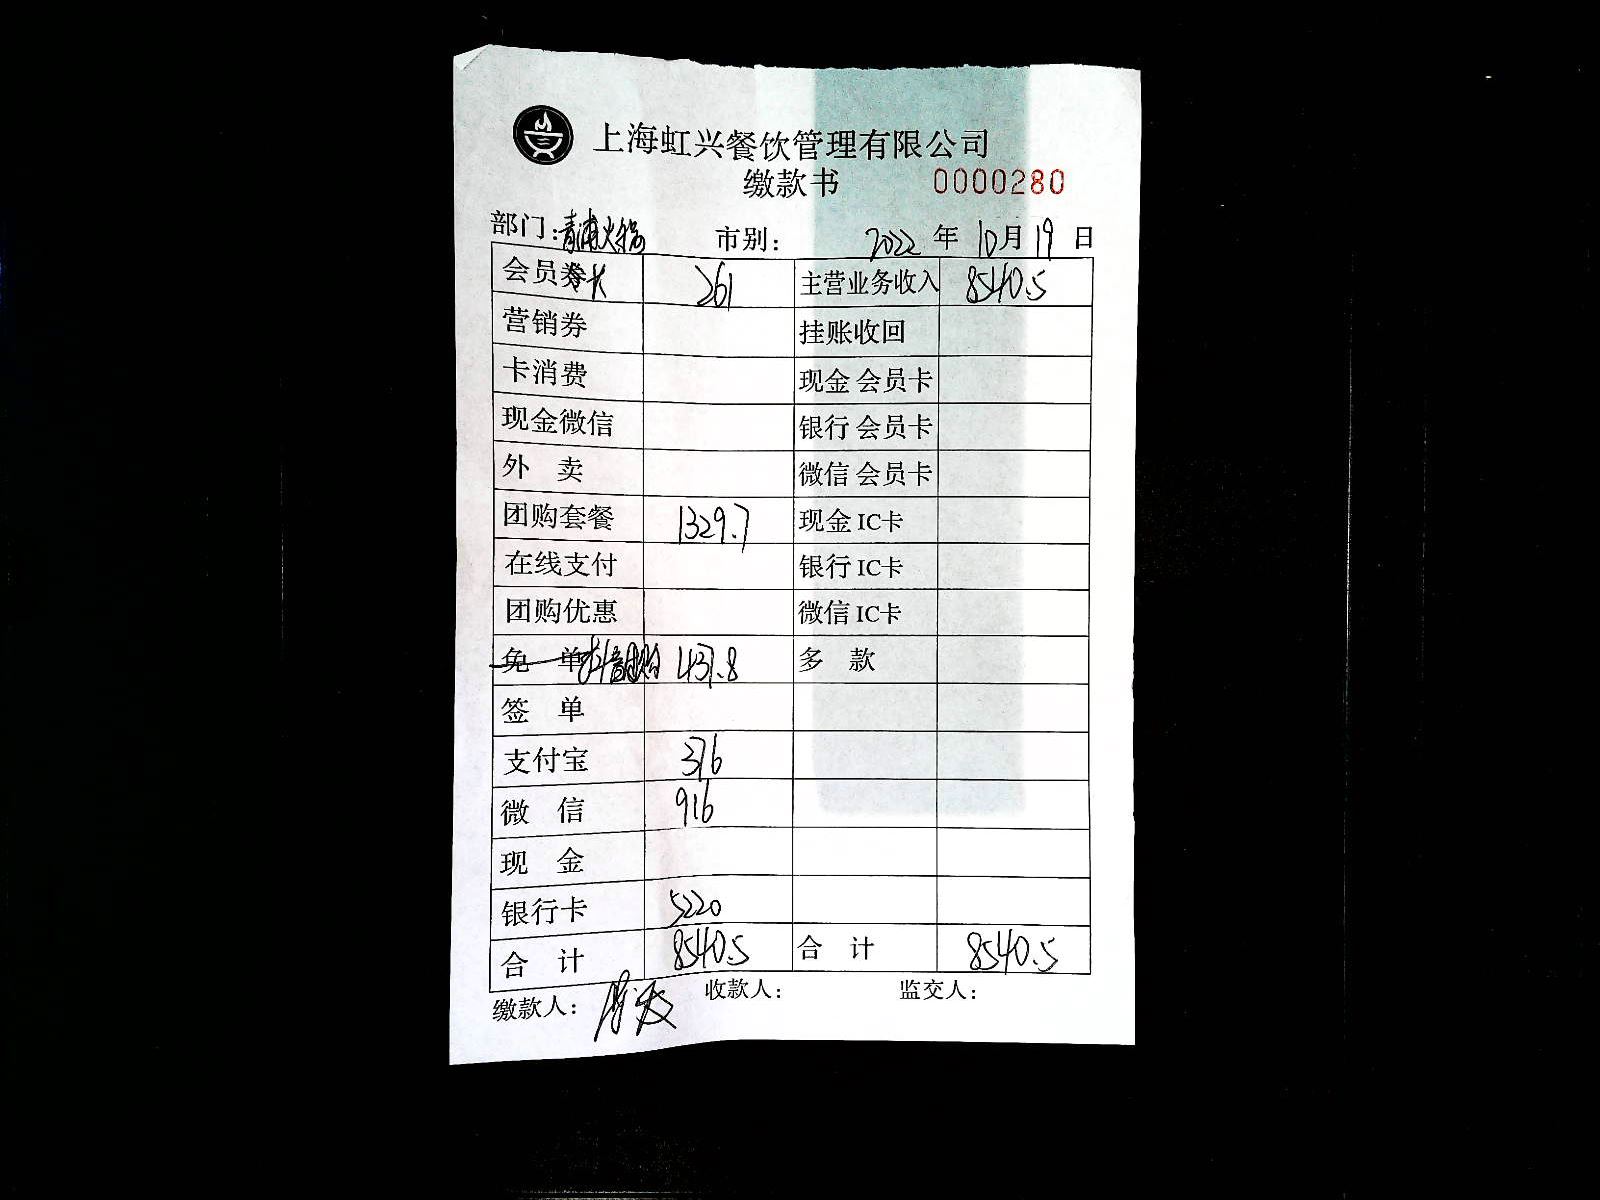 上海虹兴餐饮管理有限公司
缴款书 0000280
部门:青浦火锅 市别: 2022 年 10月 19 日
会员卡 261 主营业务收入 8540.5
营销券 挂账收回
卡消费 现金 会员卡
现金微信 银行 会员卡
外 卖 微信 会员卡
团购套餐 1329.7 现金 IC卡
在线支付 银行 IC卡
团购优惠 微信 IC卡
免 单 抖音团购 437.8 多 款
签 单
支付宝 376
微 信 916
现 金
银行卡 5220
合 计 8540.5 合 计 8540.5
缴款人: 收款人: 监交人: